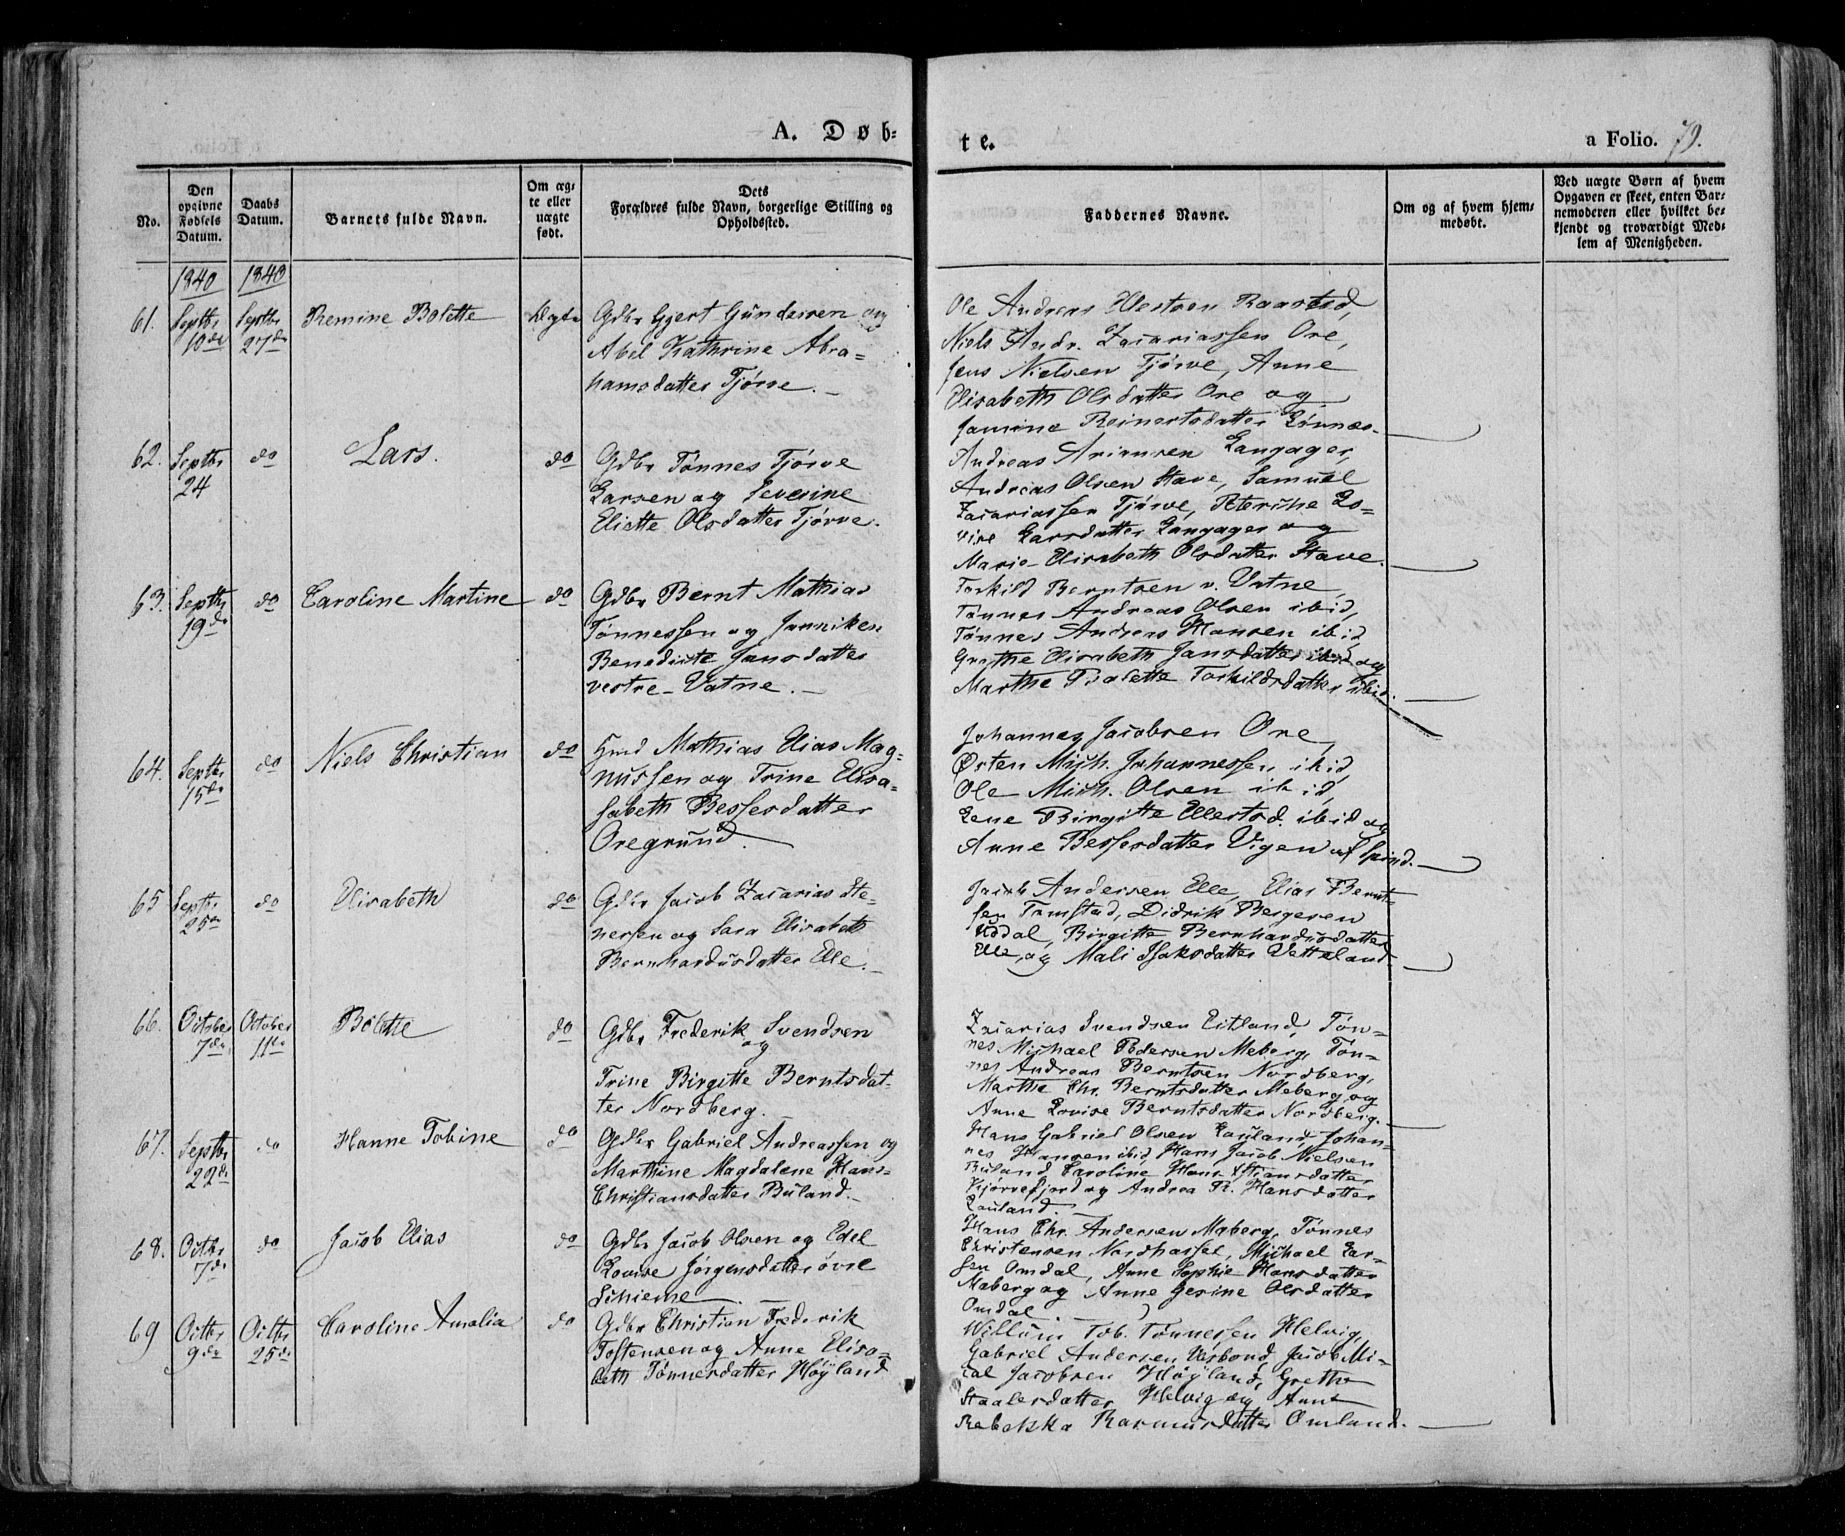 A. Døb-
te.
a Folio. 79.
No.
Den opgivne Fødsels Datum.
Daabs Datum.
Barnets fulde Navn.
Om ægte eller uægte født.
Dets
Forældres fulde Navn, borgerlige Stilling og
Opholdssted.
Faddernes Navne.
Om og af hvem hjem-
medøbt.
Ved uægte Børn af hvem
Opgaven er skeet, enten Bar-
nemoderen eller hvilket be-
kjendt og troværdigt Med-
lem af Menigheden.
1840 1840
61. Septbr 10de Septbr 27de Remine Bolette Ægte Gdbr Gjert Gundersen og
Abel Kathrine Abra-
hamsdatter Tjørve.
Ole Andreas Hestsen Raastad,
Niels Andr. Zacariassen Ore,
Jens Nielsen Tjørve, Anne
Elisabeth Olsdatter Ore og
Jamine Reinertsdatter Lønnes.
62. Septbr 24 do Lars. do Gdbr Tønnes Tjørve
Larsen og Severine
Eliette Olsdatter Tjørve.
Andreas Arensen Langager,
Andreas Olsen Stave, Samuel
Zacariassen Tjørve, Peterike Lo-
vise Larsdatter Langager og
Marie Elisabeth Olsdatter Stave.
63. Septbr 19de do Caroline Martine do Gdbr Bernt Mathias
Tønnessen og Janniken
Benedicte Jansdatter
vestre Vatne.
Torkild Berntsen v. Vatne,
Tønnes Andreas Olsen ibid,
Tønnes Andreas Hansen ibid,
Grethe Elisabeth Jansdatter ibid og
Marthe Bolette Torkildsdatter ibid.
64. Septbr 15de do Niels Christian do Hmd Mathias Elias Mag-
nussen og Trine Elisa-
sabeth Bessesdatter
Oregrund.
Johannes Jacobsen Ore,
Østen Mich. Johannessen ibid,
Ole Mich. Olsen ibid,
Lene Birgitte Ellestsd. ibid og
Anne Bessesdatter Vigen af Spind.
65 Septbr 25de do Elisabeth do Gdbr Jacob Zacarias Ste-
nersen og Sara Elisabeth
Bernhardusdatter Elle.
Jacob Andersen Elle, Elias Bernt-
sen Tomstad, Didrik Bergesen
Uddal, Birgitte Bernhardusdatter
Elle, og Mali Isaksdatter Vetteland.
66. October 7de October 11te Bolette do Gdbr Frederik Svendsen
og
Trine Birgitte Berntsdat-
ter Nordberg.
Zacarias Svendsen Eitland, Tøn-
nes Michael Pedersen Meberg, Tøn-
nes Andreas Berntsen Nordberg,
Marthe Chr. Berntsdatter Meberg og
Anne Lovise Berntsdatter Nordberg.
67. Septbr 22de do Hanne Tobine do Gdbr Gabriel Andreassen og
Marthine Magdalene Hans
Christiansdatter Buland.
Hans Gabriel Olsen Lauland, Johan-
nes Hansen ibid, Hans Jacob Nielsen
Buland, Caroline Hans Xstiansdatter
Kjørrefjord og Andrea R. Hansdatter
Lauland.
68. Octbr 7de do Jacob Elias do Gdbr Jacob Olsen og Edel
Lovise Jørgensdatter øvre
Schieme
Hans Chr. Andersen Maberg, Tønnes
Christensen Nordhassel, Michael Lar-
sen Omdal, Anne Sophie Hansdatter
Maberg og Anne Gesine Olsdatter
Omdal
69 Octbr 9de Octbr 25de Caroline Amalia do Gdbr Christian Frederik
Tostensen og Anne Elisa-
beth Tønnesdatter Høyland
Willum Tob. Tønnessen Helvig,
Gabriel Andersen Vesbond, Jacob Mi-
cal Jacobsen Høyland, Grethe
Staalesdatter Helvig og Anne
Rebekka Rasmusdatter Omland.